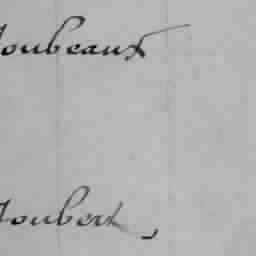 Joubeaux
Joubert,